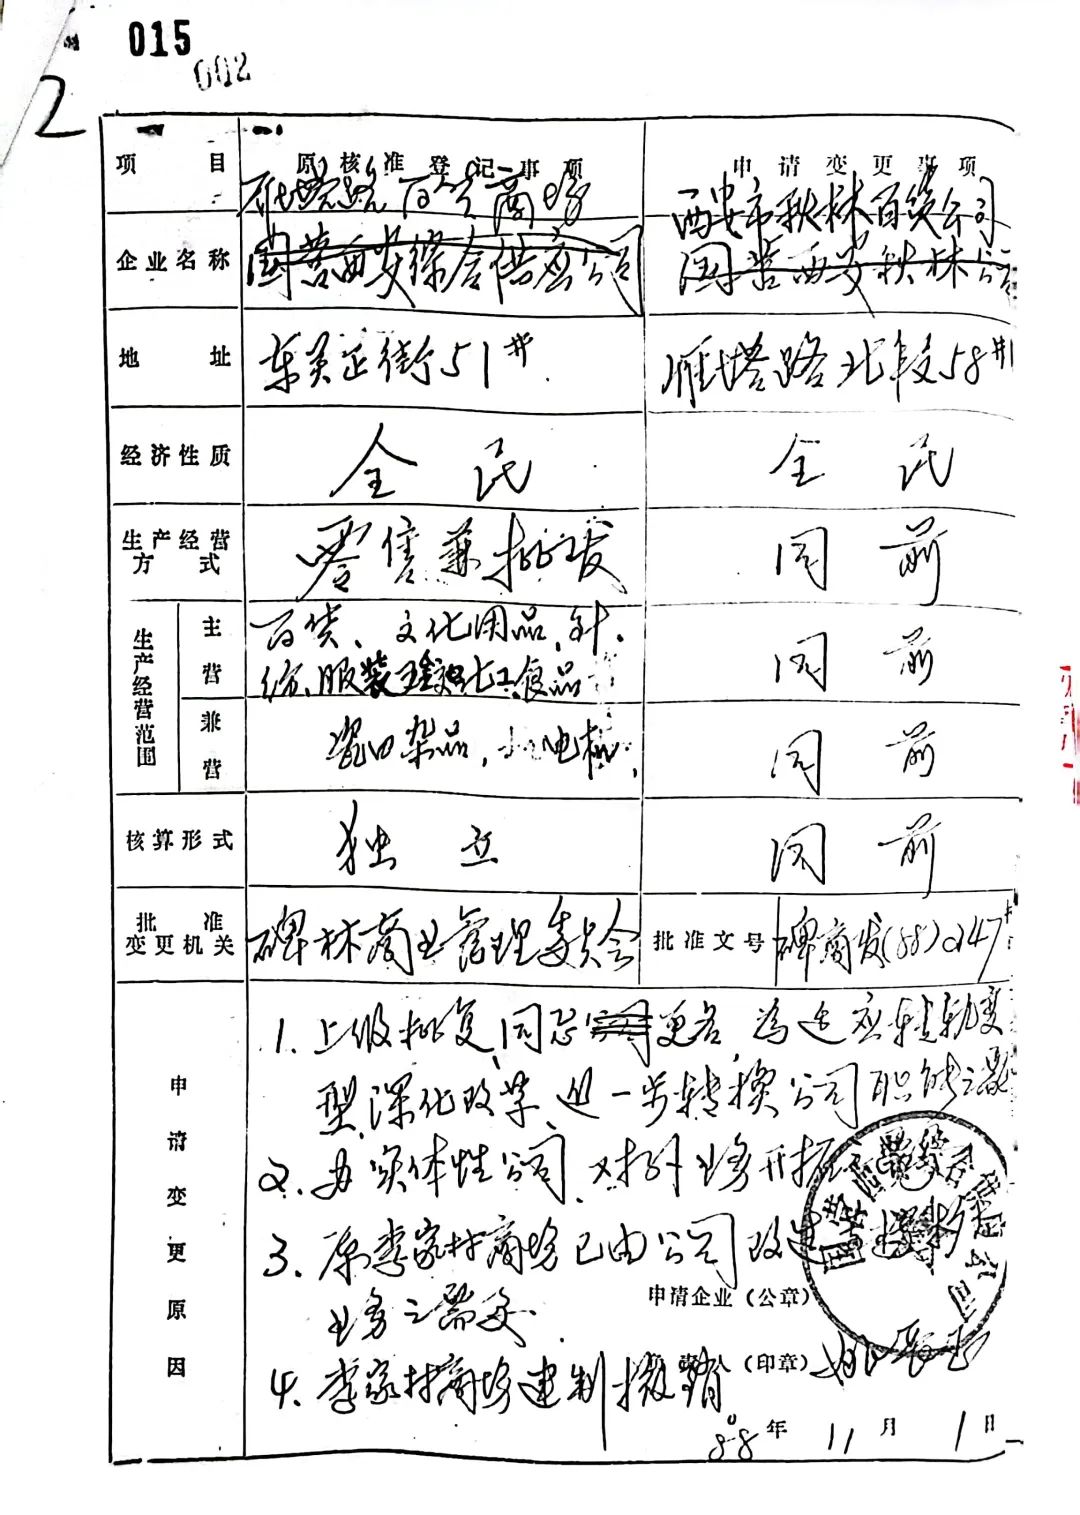 015
002
2
项目 原核准登记事项 申请变更事项
雁塔路百货商场 西安市秋林百货公司
企业名称 国营西安综合供应公司 国营西安秋林公司
地址 东关正街51# 雁塔路北段58#
经济性质 全民 全民
生产经营方式 零售兼批发 同前
生产经营范围 主营 百货、文化用品、针
织、服装 五金 化工 食品 同前
兼营 电机 同前
核算形式 独立 同前
批准变更机关 碑林商业管理委员会 批准文号 碑商发(88)0147#
申请变更原因
1. 上级批复,同意更名,为适应转轨变
型,深化改革,进一步转换公司职能之
2. 办实体性公司,对外业务开拓
3. 原李家村商场已由公司改建
业务之需要.
申请企业(公章)
4. 李家村商场建制撤销
负责人(印章)
88年11月1日